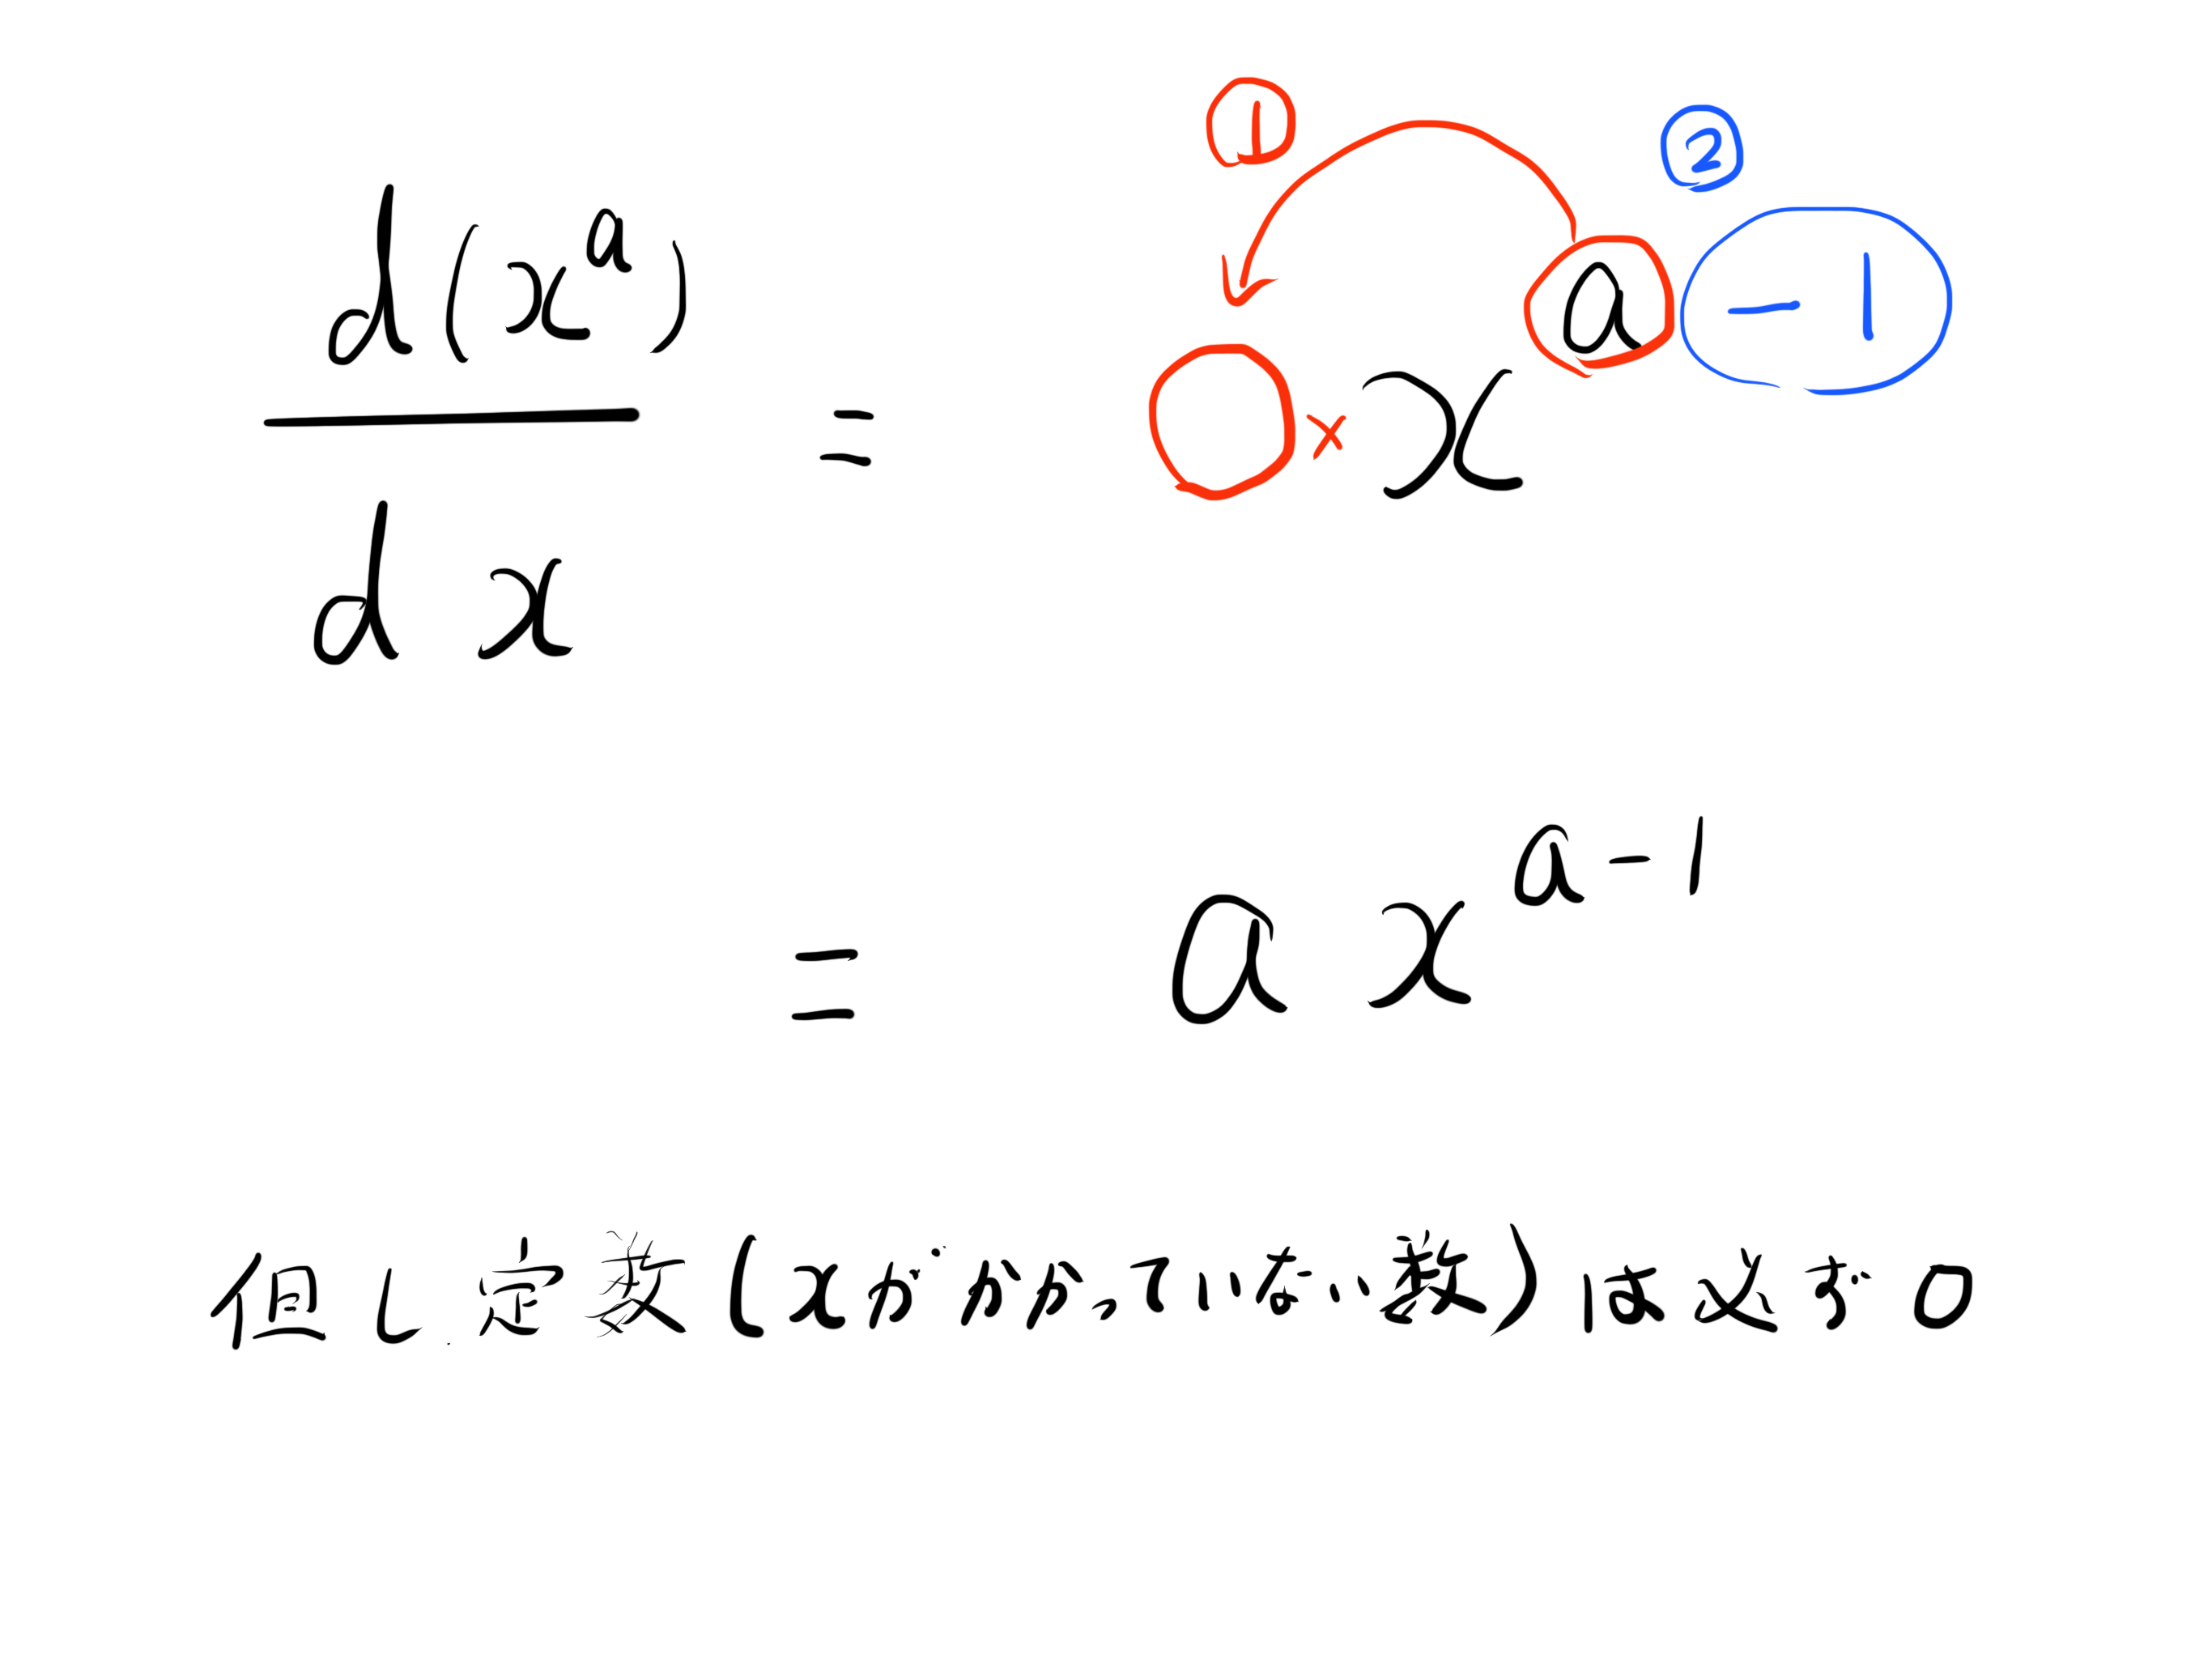 ① ②
d(x^a)/dx = ○ × x^a-1
= a x^a-1
但し、定数(xがかかっていない数)は必ず0